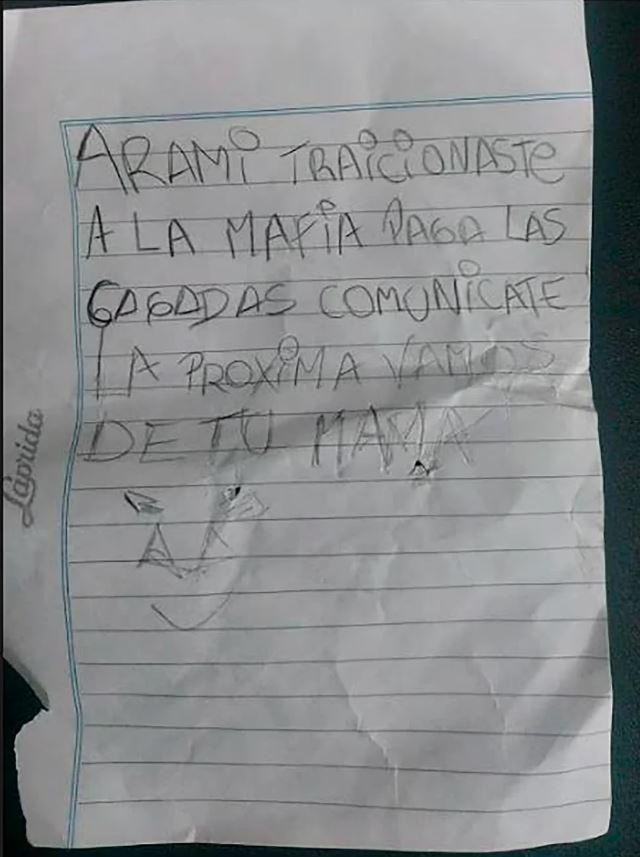 ARAMI TRAICIONASTE
A LA MAFIA PAGA LAS
CAGADAS COMUNICATE
LA PROXIMA VAMOS
DE TU MAMA
Laprida